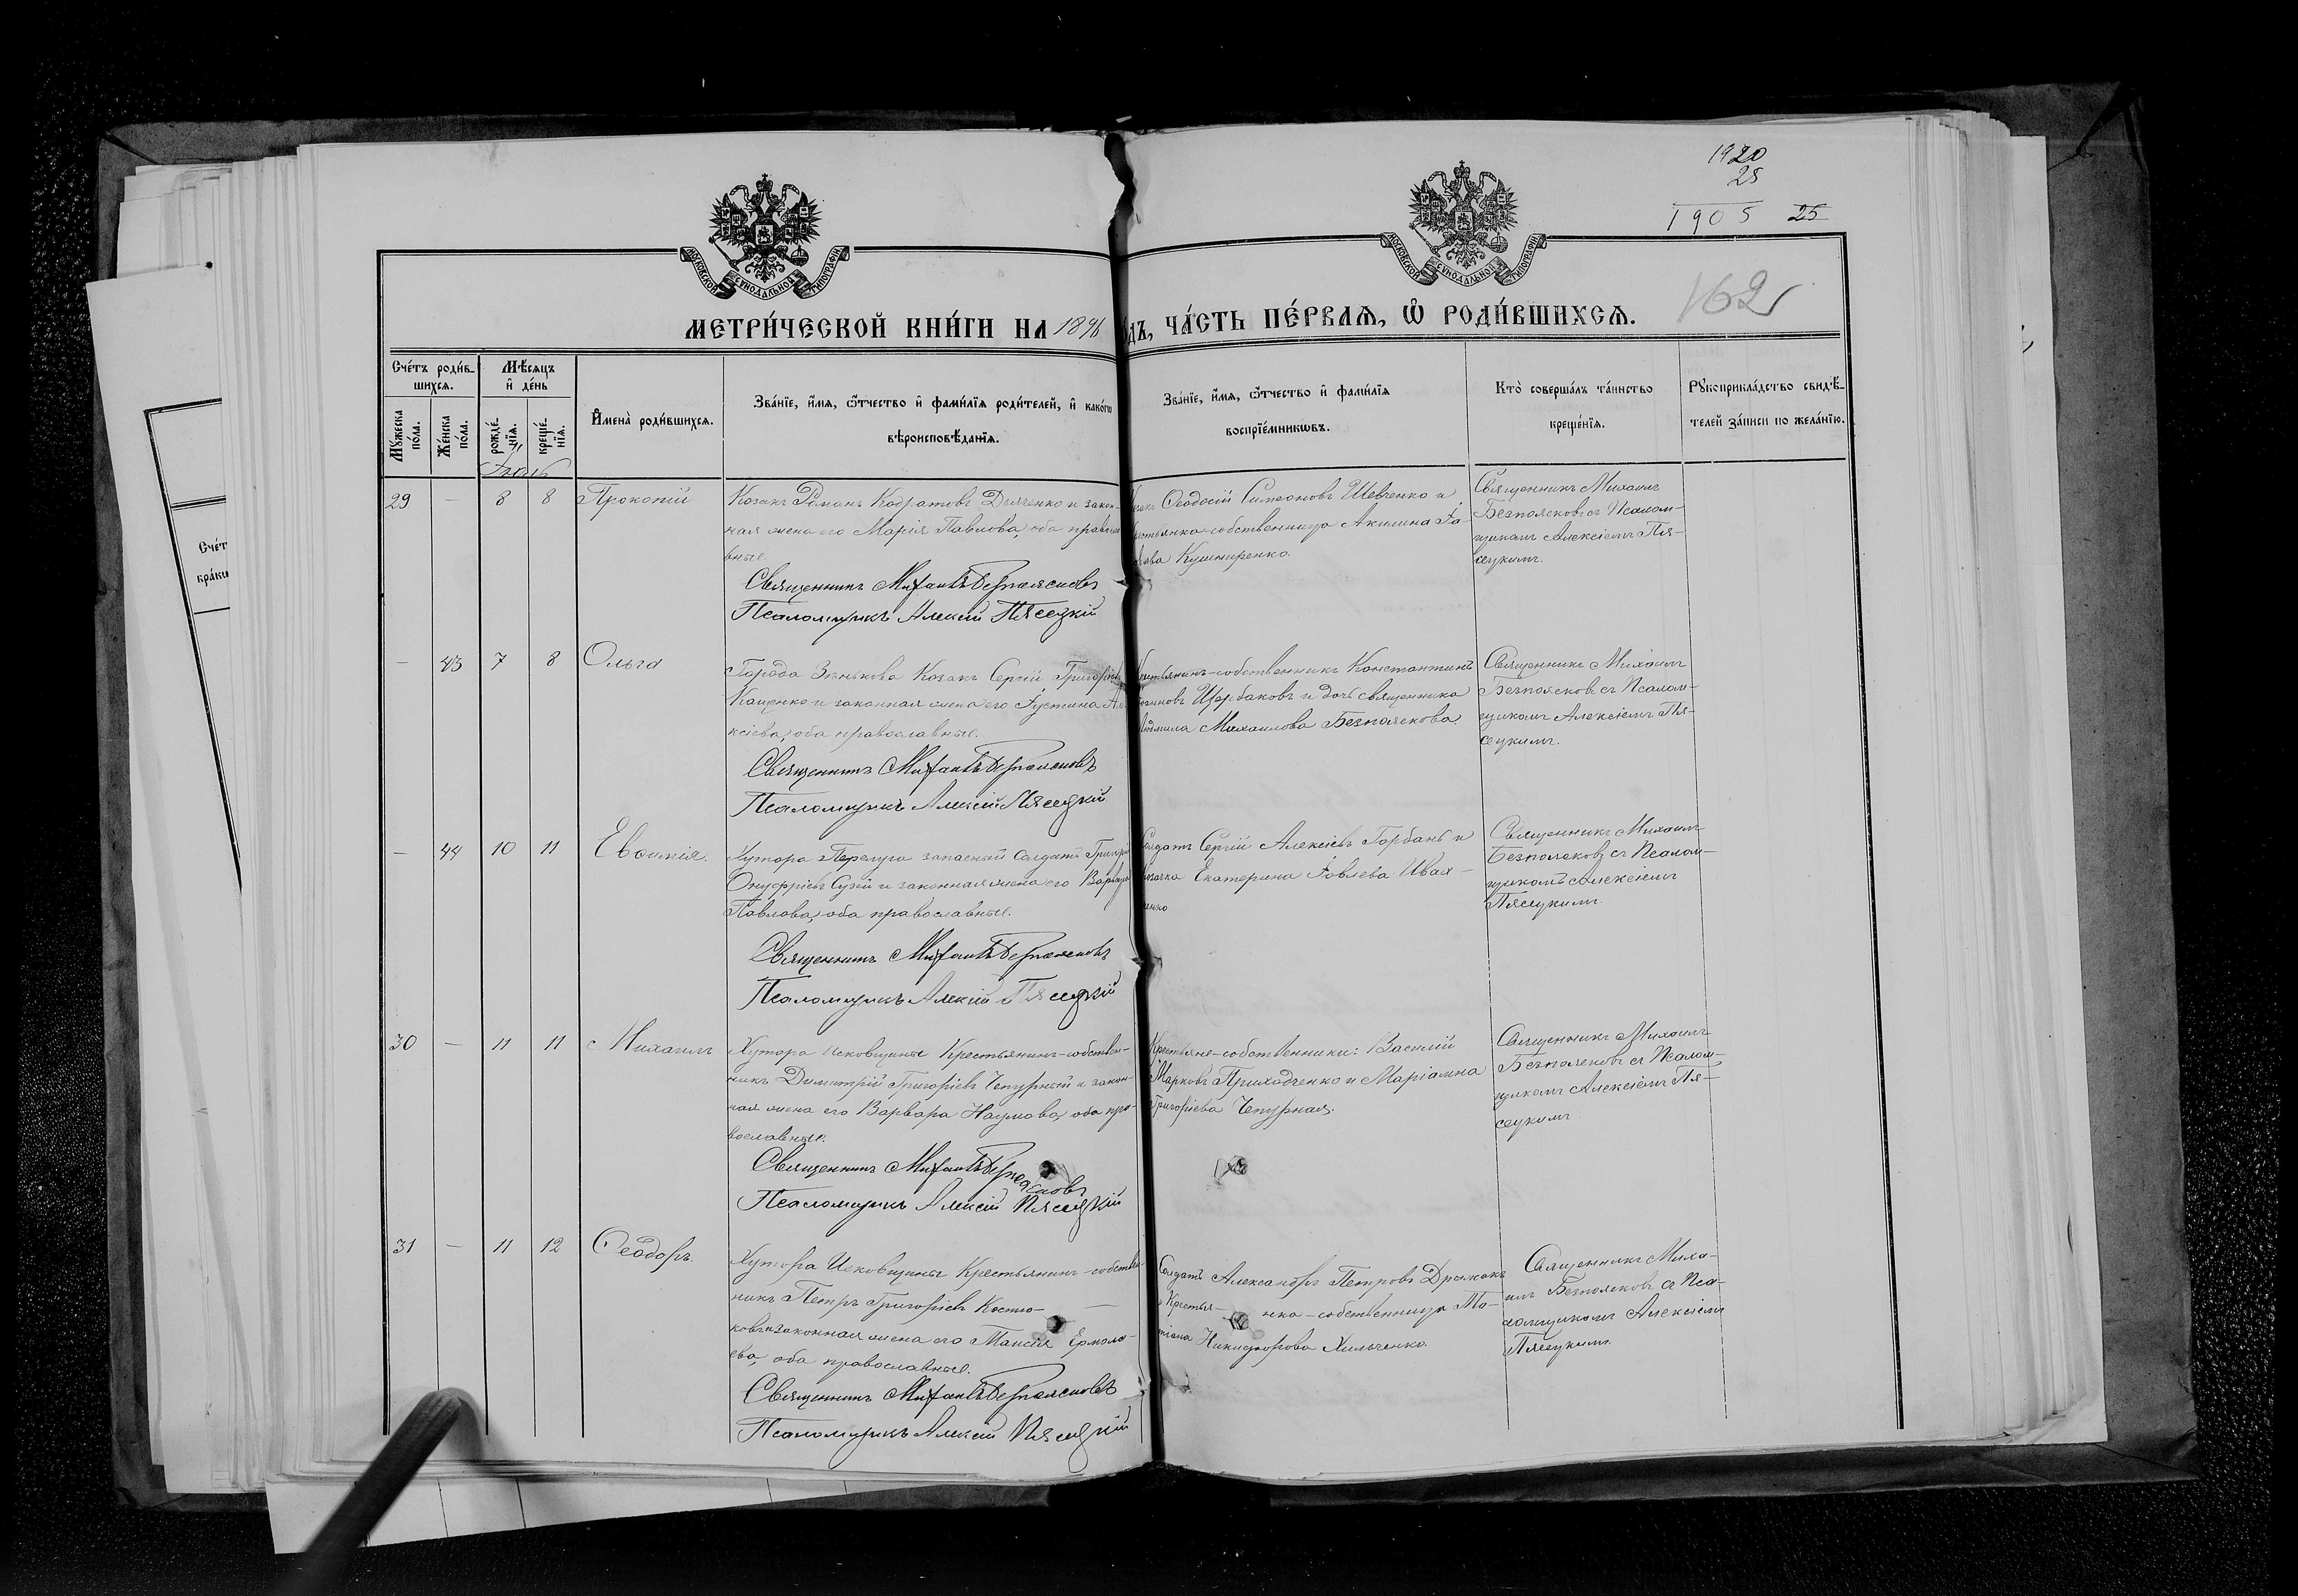 1920
25
1905 25
162
МОСКОВСКОЙ СѴНОДАЛЬНОЙ ТИПОГРАФІИ
МОСКОВСКОЙ СѴНОДАЛЬНОЙ ТИПОГРАФІИ
МЕТРИ́ЧЕСКОЙ КНИ́ГИ НА 1896
ЧА́СТЬ ПЕ́РВАѦ, Ѡ҆ РОДИ́ВШИХСѦ.
Сче́тъ роди́в-
шихсѧ.
Мꙋ́жеска по́ла.
Же́нска по́ла.
Мѣ́сѧцъ и҆ де́нь
рожде́-нїѧ.
креще́-нїѧ.
И҆мена̀ роди́вшихсѧ.
Зва́нїе, и҆́мѧ, ѻ҆́тчество и҆ фами́лїѧ роди́телей, и҆ како́гѡ
вѣроисповѣ́данїѧ.
Зва́нїе, и҆́мѧ, ѻ҆́тчество и҆ фами́лїѧ
воспрїе́мникѡвъ.
Кто̀ соверша́лъ та́инство
креще́нїѧ.
Рꙋкоприкла́дство свидѣ́-
телей за́писи по жела́нїю.
29 — 8 8 Прокопій
Козакъ Романъ Кодратовъ Дьяченко и закон-
ная жена его Марія Павлова, оба правосла-
вные.
Священникъ Михаилъ Безпоясковъ
Псаломщикъ Алексій Пясецкій
Ѳеодосій Симеоновъ Шевченко и
собственница Акилина
Кушниренко.
Священникъ Михаилъ
Безпоясковъ съ Псалом-
щикомъ Алексіемъ Пя-
сецкимъ.
— 43 7 8 Ольга
Города Зѣнькова Козакъ Сергій Григорьев
Кащенко и законная жена его Іустина Але-
ксіева, оба православные.
Священникъ Михаилъ Безпоясковъ
Псаломщикъ Алексій Пясецкій
собственникъ Константинъ
Щербаковъ и дочь священника
Людмила Михаилова Безпояскова
Священникъ Михаилъ
Безпоясковъ съ Псалом-
щикомъ Алексіемъ Пя-
сецкимъ.
— 44 10 11 Евѳимія.
Хутора запасный солдатъ Григорій
Онуфріевъ и законная жена его Варвара
Павлова, оба православные.
Священникъ Михаилъ Безпоясковъ
Псаломщикъ Алексій Пясецкій
Солдатъ Сергій Алексіевъ Горбань и
Козачка Екатерина Іовлева Ивах-
ненко
Священникъ Михаилъ
Безпоясковъ съ Псалом-
щикомъ Алексіемъ
Пясецкимъ.
30 — 11 11 Михаилъ
Хутора Исковщины Крестьянинъ-собствен-
никъ Димитрій Григоріевъ Чепурный и закон-
ная жена его Варвара Наумова, оба пра-
вославные.
Священникъ Михаилъ Безпоясковъ
Псаломщикъ Алексій Пясецкій
Крестьяне-собственники: Василій
Марковъ Приходченко и Маріамна
Григоріева Чепурная.
Священникъ Михаилъ
Безпоясковъ съ Псалом-
щикомъ Алексіемъ Пя-
сецкимъ
31 — 11 12 Ѳеодоръ.
Хутора Исковщины Крестьянинъ-собствен-
никъ Петръ Григоріевъ Костю-
ковъ и законная жена его Таисія Ермола-
ева, оба православные.
Священникъ Михаилъ Безпоясковъ
Псаломщикъ Алексій Пясецкій
Солдатъ Александръ Петровъ
и Крестья- нка-собственница Та-
тіана Никифорова Хильченко
Священникъ Миха-
илъ Безпоясковъ съ Пса-
ломщикомъ Алексіемъ
Пясецкимъ.
Сче́т
бра́ки